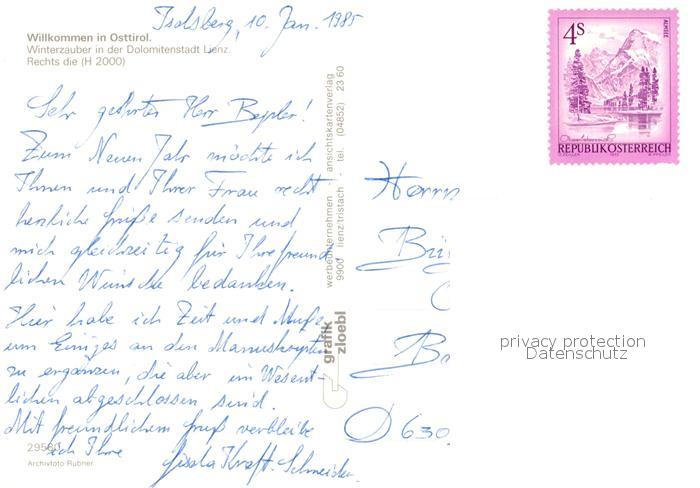 Iselsberg, 10. Jan. 1985
Willkommen in Osttirol.
Winterzauber in der Dolomitenstadt Lienz.
Rechts die (H 2000)
Sehr geehrter Herr Bepler!
Zum Neuen Jahr möchte ich
Ihnen und Ihrer Frau recht
herzliche Grüße senden und
mich gleichzeitig für Ihre freund
lichen Wünsche bedanken.
Hier habe ich Zeit und Muße
um Einiges an den Manuskripten
zu ergänzen, die aber im Wesent-
lichen abgeschlossen sind.
Mit freundlichem Gruß verbleibe
ich Ihre Gisela Kraft-Schneider
29580
Archivfoto Rubner
werbeunternehmen - ansichtskartenverlag
9900 lienz/tristach · tel. (04852) 23 60
grafik
zloebl
4S
ALMSEE
REPUBLIK ÖSTERREICH
Herrn
Bü
Ba
D 630
privacy protection
Datenschutz